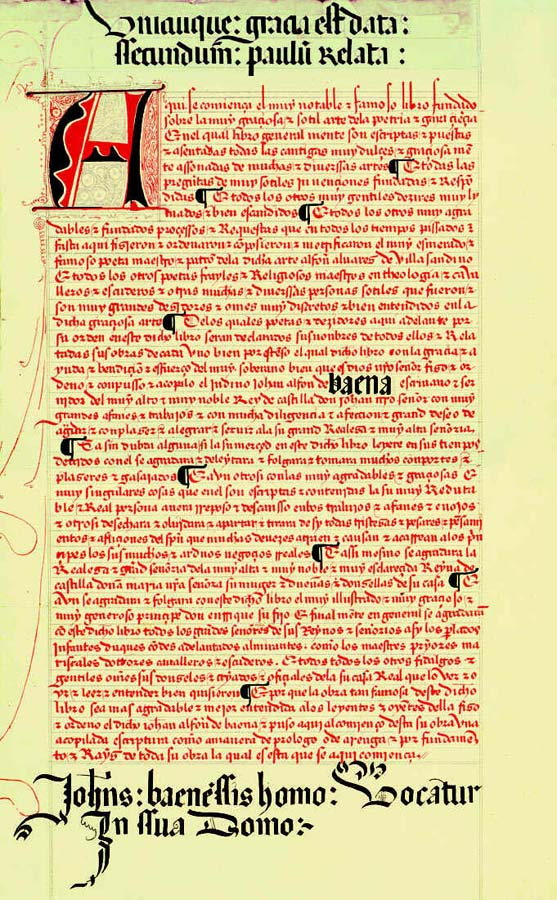 Unicuique: gracia est data:
ssecundum: paulũ Relata:
Aqui se comiença el muy notable τ famoso libro fundado
sobre la muy graçiosa τ sotil arte dela poetria τ gaya çiençia
En el qual libro general mente son escriptas τ puestas
τ asentadas todas las cantigas muy dulçes τ graçiosa mẽ
te assonadas de muchas τ diuerssas artes ¶ E todas las
preguntas de muy sotiles jnuençiones fundadas τ Respõ
didas ¶ E todos los otros muy gentiles dezires muy ly
mados τ bien escandidos ¶ E todos los otros muy agra
dables τ fundados proçessos τ Requestas que en todos los tiempos passados
fasta aqui fisieron τ ordenaron τ conposieron τ metrificaron el muy esmerado τ
famoso poeta maestro τ patrõ dela dicha arte alfon aluares de villa sandino
E todos los otros poetas frayles τ Religiosos maestros en theologia τ caua
lleros τ escuderos τ otras muchas τ diuerssas personas sotiles que fueron τ
son muy grandes desidores τ omes muy discretos τ bien entendidos enla
dicha graçiosa arte ¶ Delos quales poetas τ dezidores aqui adelante por
su orden eneste dicho libro seran declarados sus nonbres de todos ellos τ Rela
tadas sus obras de cada vno bien por estẽso el qual dicho libro con la graçia τ a
yuda τ bendiçiõ τ esfuerço del muy soberano bien que es dios nrõ señor fiso τ or
deno τ conpuso τ acopilo el indino Johan alfon de baena escriuano τ ser
uidor del muy alto τ muy noble Rey de castilla don johan nrõ señor con muy
grandes afanes τ trabajos τ con mucha diligençia τ afecçion τ grand deseo de
agradar τ conplaser τ alegrar τ seruir ala su grand Realesa τ muy alta señoria.
¶ Ca sin dubda alguna si la su merçed en este dicho libro leyere en sus tienpos
deuidos con el se agradara τ deleytara τ folgara τ tomara muchos conportes τ
plaseres τ gasajados ¶ E avn otrosi con las muy agradables τ graçiosas E
muy singulares cosas que enel son escriptas τ contenidas la su muy Reduta
ble τ Real persona auera rreposo τ descansso enlos trabajos τ afanes τ enojos
τ otrosi desechara τ oluidara τ apartara τ tirara de sy todas tristesas τ pesares τ pẽsami
entos τ afliçiones del spũ que muchas deueses atraen τ causan τ acarrean alos prin
çipes los sus muchos τ arduos negoçios rreales ¶ E assi mesmo se agradara la
Realesa τ grãd señoria dela muy alta τ muy noble τ muy esclaresçida Reyna de
castilla doña maria nrã señora su muger τ dueñas τ donsellas de su casa ¶ E
avn se agradara τ folgara con este dicho libro el muy illustrado τ muy graçioso τ
muy generoso prinçipe don enrrique su fijo E final mẽte en general se agradaran
cõ este dicho libro todos los grãdes señores de sus Reynos τ señorios asy los plados
jnfantes duques cõdes adelantados almirantes. como los maestres pryores ma
riscales dottores caualleros τ escuderos. E todos todos los otros fidalgos τ
gentiles omẽs sus donseles τ cryados τ ofiçiales dela su casa Real que lo ver τ o
yr τ leer τ entender bien quisieren ¶ E por que la obra tan famosa deste dicho
libro sea mas agradable τ mejor entendida alos leyentes τ oyentes della fiso
τ ordeno el dicho johan alfon de baena τ puso aqui al comienço desta su obra vna
acopilada escriptura como a manera de prologo o de arenga τ por fundamẽ
to τ Rays de toda su obra la qual es esta que se aqui comiença
Johñs: baenẽssis homo: Vocatur
In ssua Domo:~